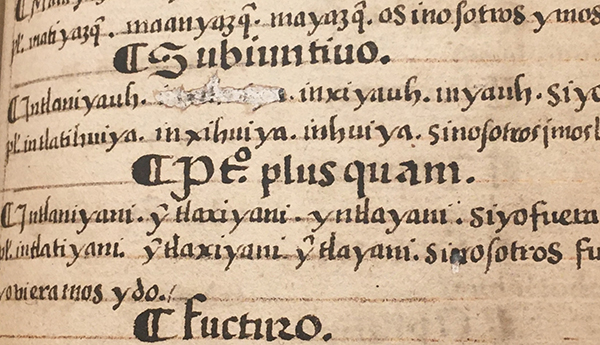 pl. matiyazq̃. maanyazq̃. mayazq̃. os inosotros ymos
¶ Subiuntiuo.
¶ Intlaniyauh. inxiyauh. inyauh. siyo
pl. intlatihuiya. inxihuiya. inhuiya. sinosotros imos
¶ Pt°. plus quam.
¶ Intlaniyani. ỹ tlaxiyani. yntlayani. siyofuera
pl. intlatiyani. ỹ tlaxiyani ỹ tlayani. sinosotros fu
yovieramos ydo.
¶ fucturo.